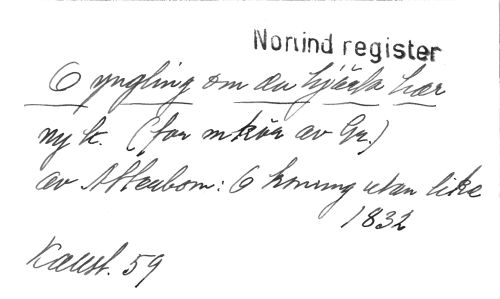 Norlind register
O yngling om du hjärta har
ny k. (för mkör av Gr.)
av Atterbom: O konung utan like
1832
59